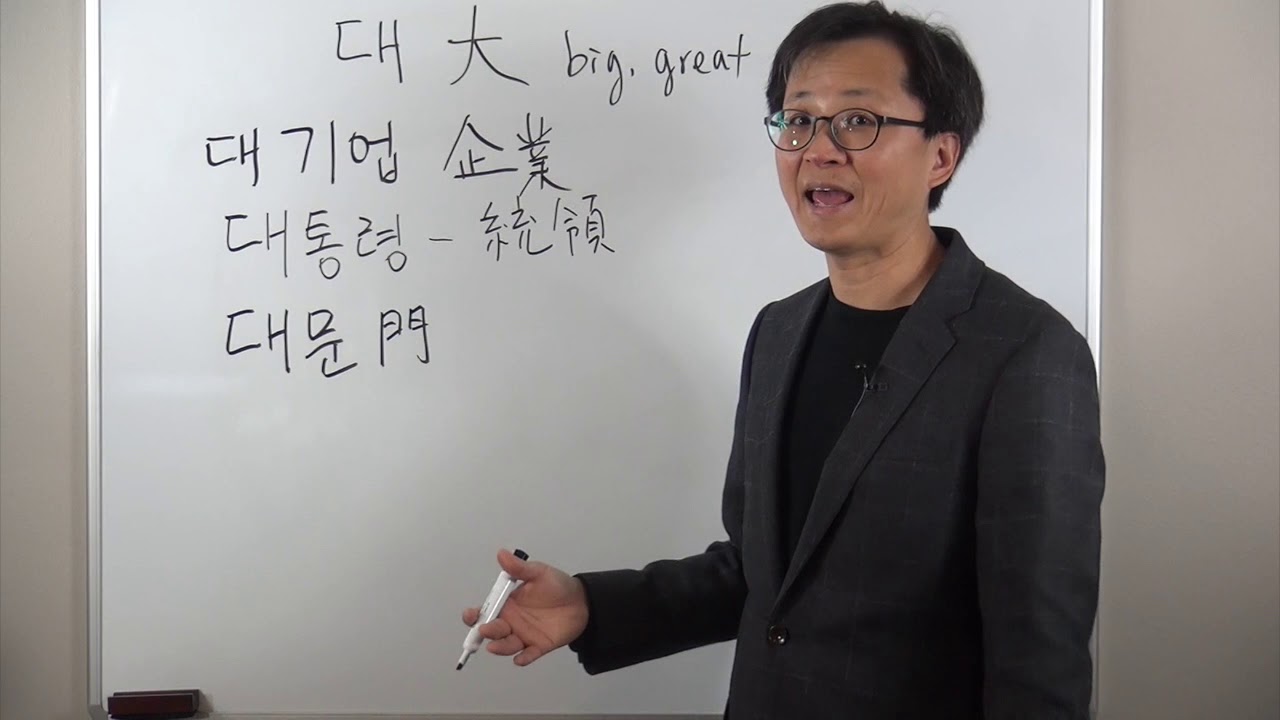 대 大 big, great
대기업 企業
대통령 - 統領
대문 門